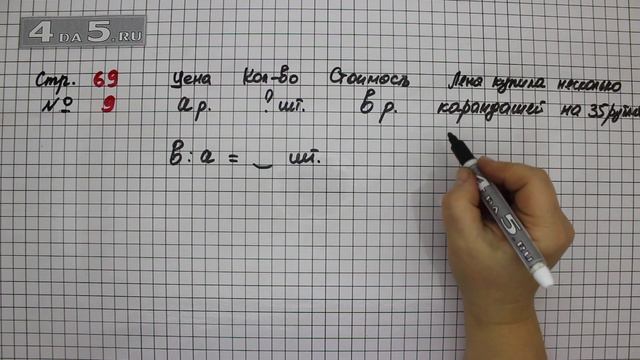 4 DA 5.RU
Стр. 69 Цена Кол-во Стоимость Лена купила несколько
№ 9 а р. ? шт. в р. карандашей на 35 рубл
в : а = _ шт.
4 DA 5.RU